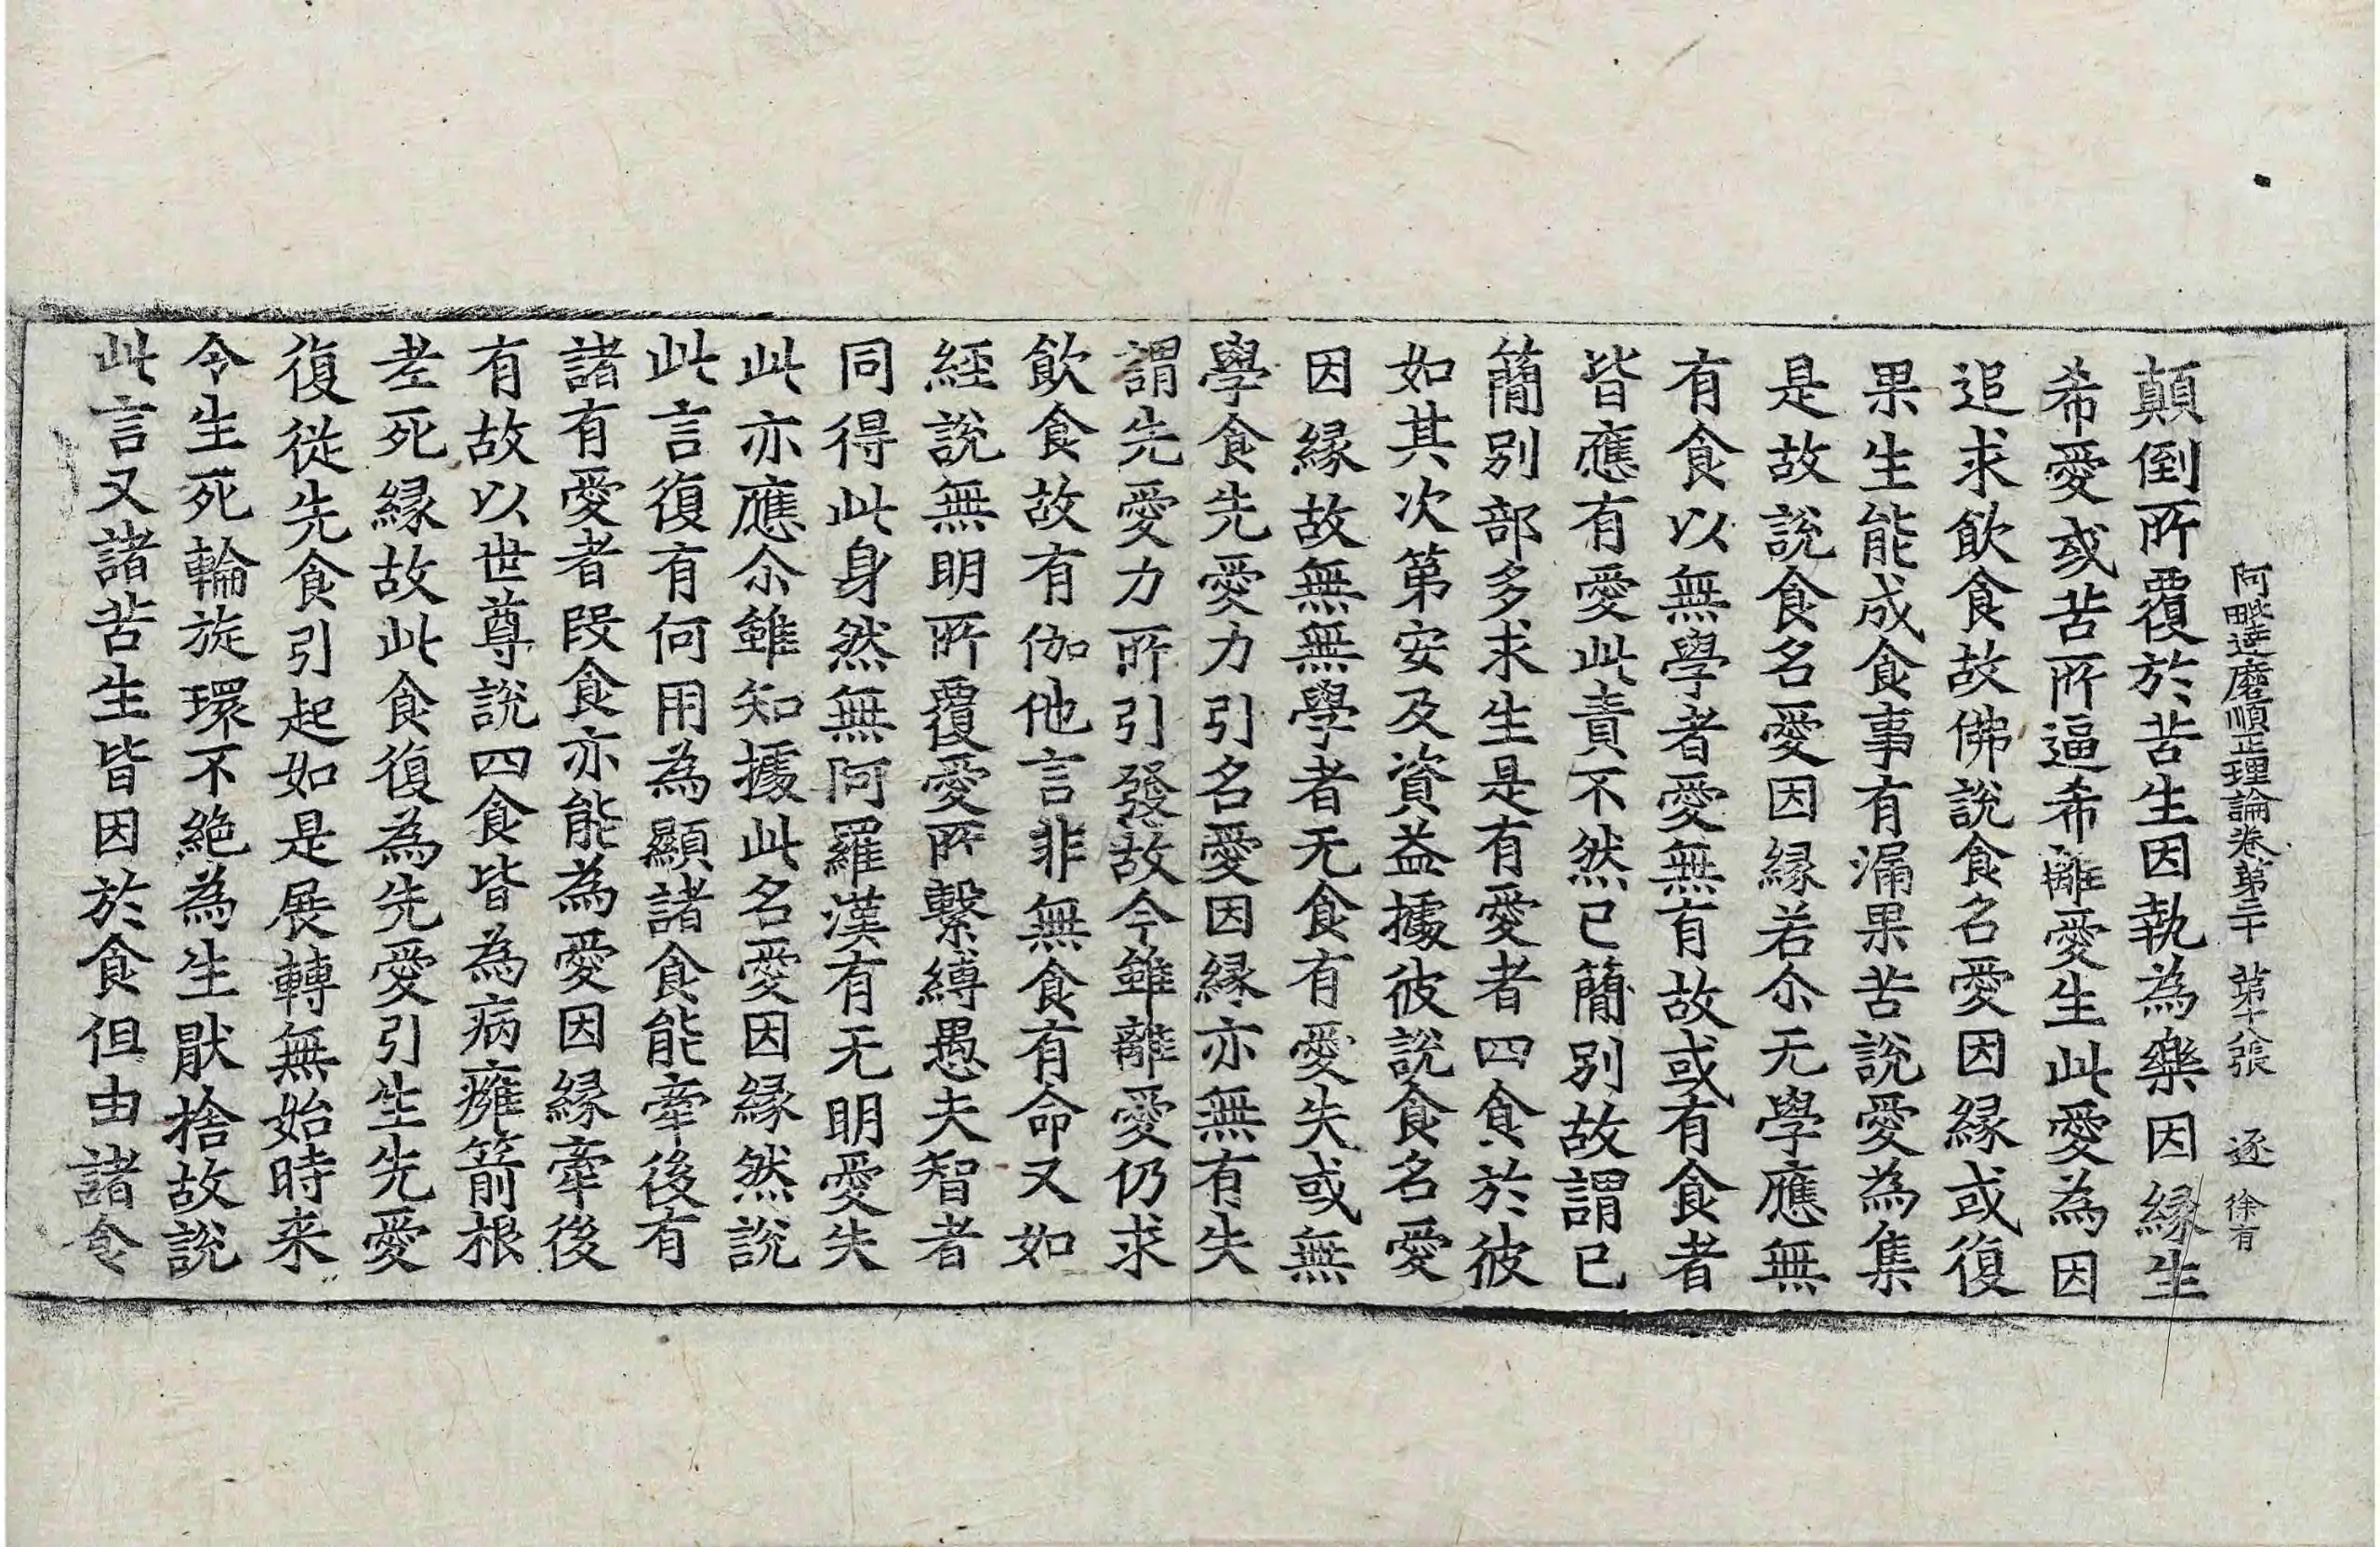 阿毗達磨順正理論卷第三十 第十八張 逐 徐有
顛倒所覆於苦生因執為樂因縁生
希愛或苦所逼希離愛生此愛為因
追求飲食故佛說食名愛因縁或復
果生能成食事有漏果苦說愛為集
是故說食名愛因縁若尒无學應無
有食以無學者愛無有故或有食者
皆應有愛此責不然已簡別故謂已
簡別部多求生是有愛者四食於彼
如其次第安及資益據彼說食名愛
因縁故無無學者无食有愛失或無
學食先愛力引名愛因縁亦無有失
謂先愛力所引發故今雖離愛仍求
飲食故有伽他言非無食有命又如
經說無明所覆愛所繫縛愚夫智者
同得此身然無阿羅漢有无明愛失
此亦應尒雖知據此名愛因縁然說
此言復有何用為顯諸食能牽後有
諸有愛者段食亦能為愛因縁牽後
有故以世尊說四食皆為病癰箭根
老死縁故此食復為先愛引生先愛
復從先食引起如是展轉無始時来
令生死輪旋環不絶為生猒捨故說
此言又諸苦生皆因於食但由諸食